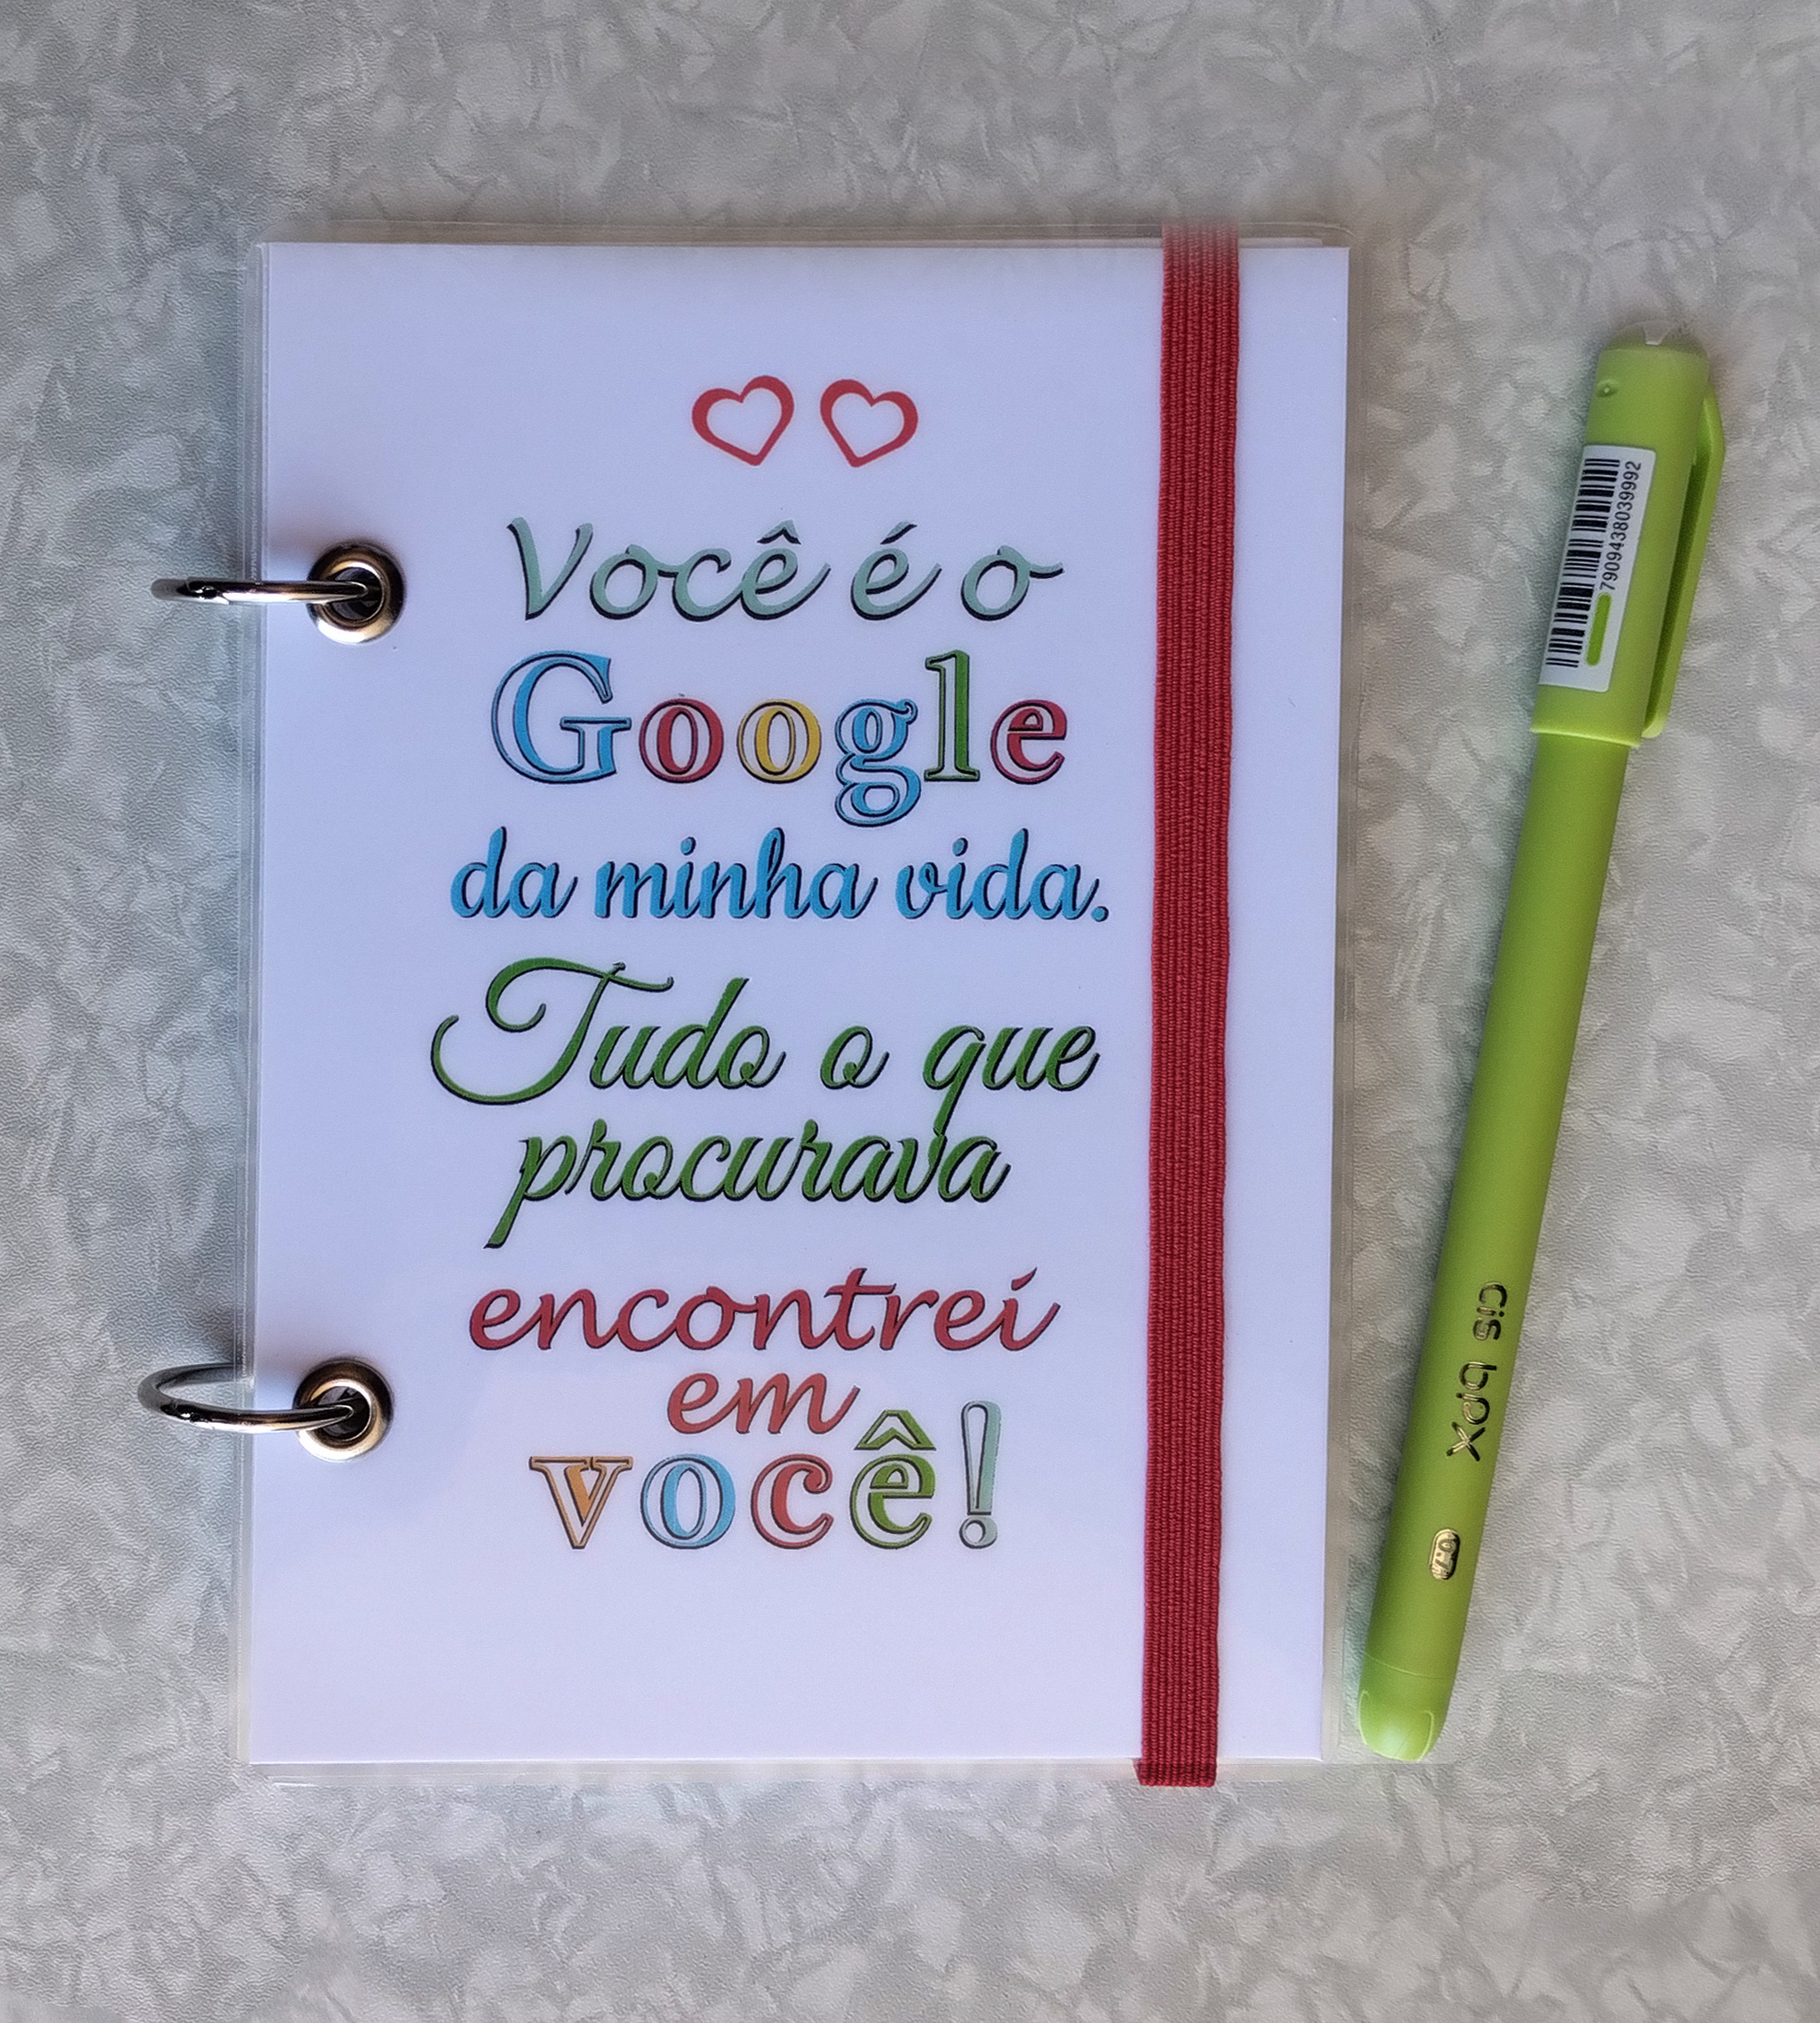 Você é o
Google
da minha vida.
Tudo o que
procurava
encontrei
em
você!
7909438039992
cis bpx
0.7